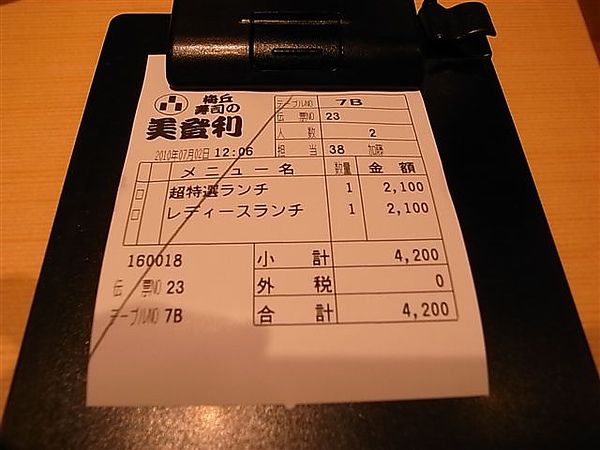 梅丘
寿司の
美登利
テーブルNO 7B
伝票NO 23
人数 2
担当 38 加藤
2010年07月02日 12:06
メニュー名 数量 金額
超特選ランチ 1 2,100
レディースランチ 1 2,100
160018
伝票NO 23
テーブルNO 7B
小計 4,200
外税 0
合計 4,200